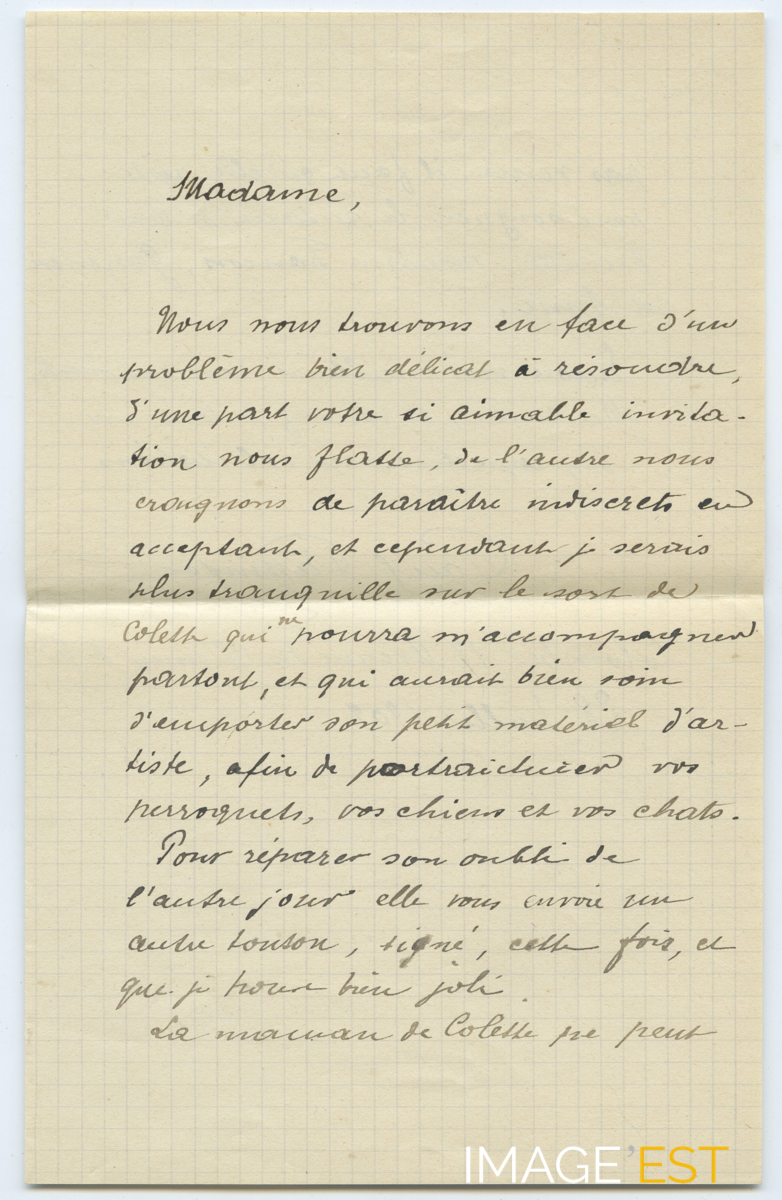 Madame,
Nous nous trouvons en face d'un
problème bien délicat à résoudre,
d'une part votre si aimable invita-
tion nous flatte, de l'autre nous
craignons de paraître indiscrets en
acceptant, et cependant je serais
plus tranquille sur le sort de
Colette qui ne pourra m'accompagner
partout, et qui aurait bien soin
d'emporter son petit matériel d'ar-
tiste, afin de portraicturer vos
perroquets, vos chiens et vos chats.
Pour réparer son oubli de
l'autre jour elle vous envoie un
autre toutou, signé, cette fois, et
que je trouve bien joli.
La maman de Colette ne peut
IMAGE'EST